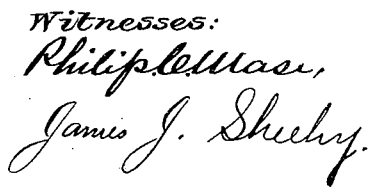 Witnesses:
Philip C. Masi,
James J. Sheehy.